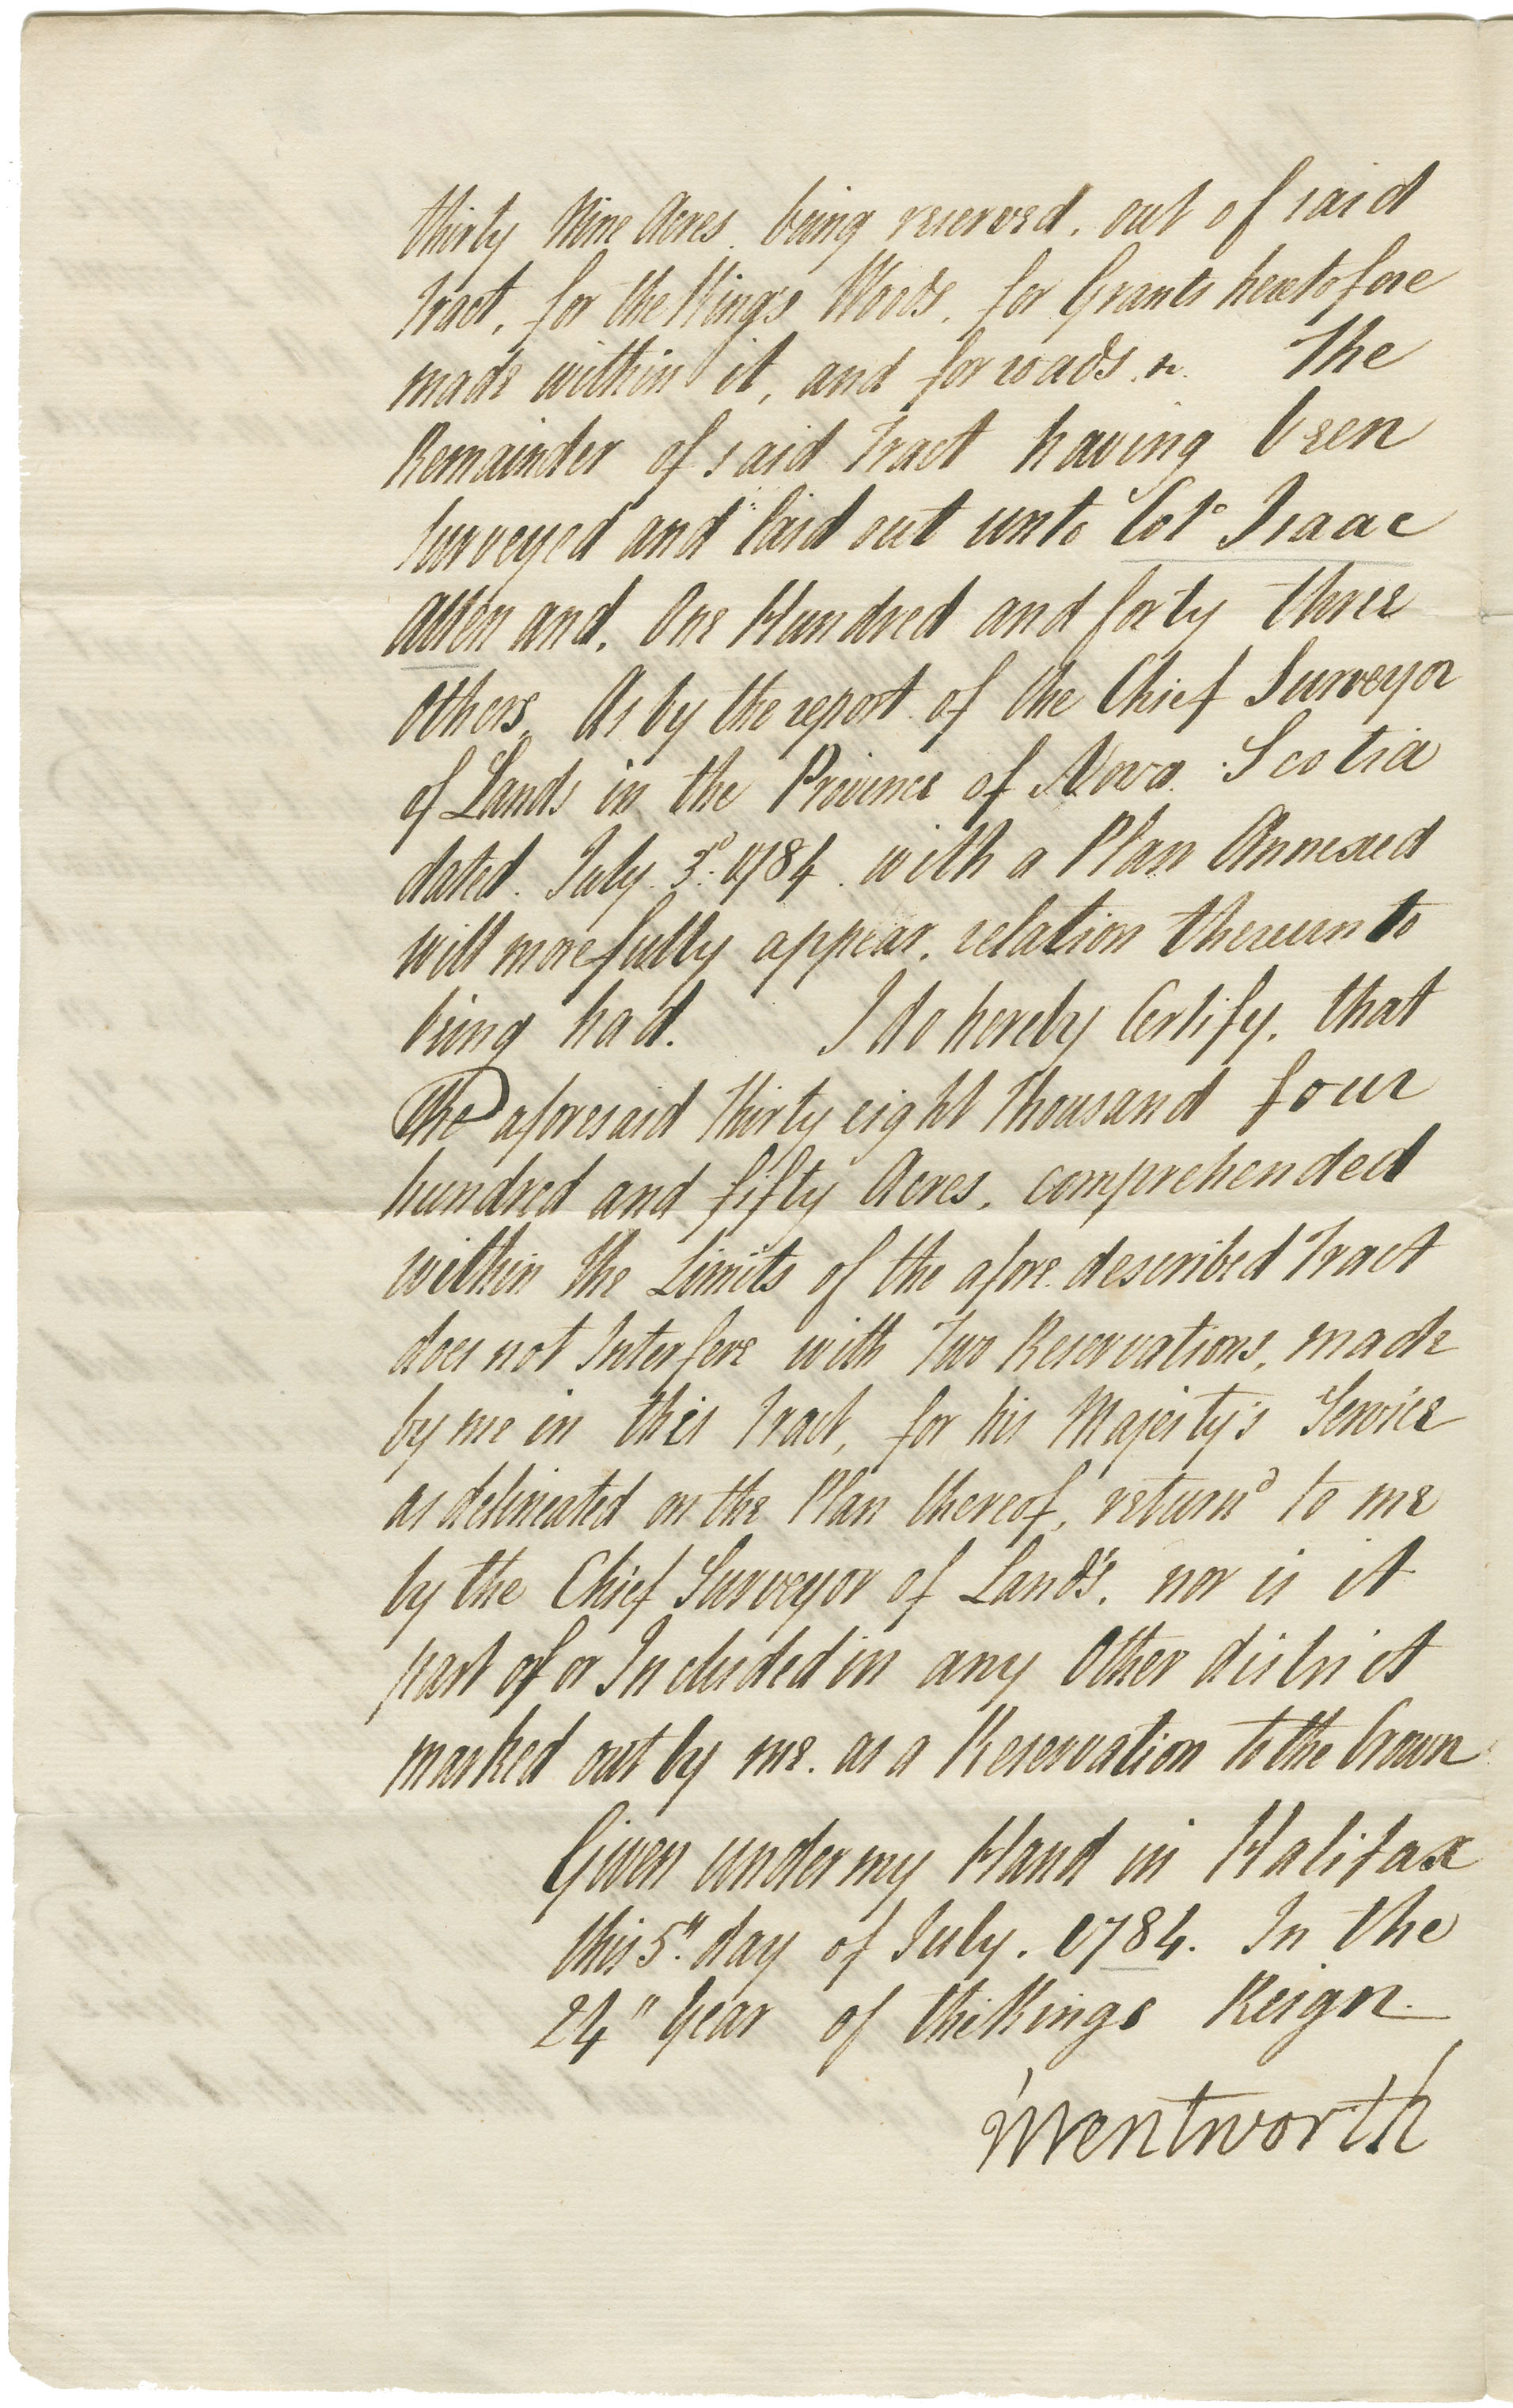 thirty Nine Acres. being reserved. out of said
Tract, for the King's Woods, for Grants heretofore
made within it, and for roads &c. The
Remainder of said Tract having been
surveyed and laid out unto Colº Isaac
Allen and, One Hundred and forty three
Others, As by the report of the Chief Surveyor
of Lands in the Province of Nova Scotia
dated. July. 3d. 1784. with a Plan Annexed
will more fully appear. relation thereunto
being had. I do hereby Certify, that
the aforesaid thirty eight thousand four
hundred and fifty Acres, comprehended
within the Limits of the afore described Tract
does not Interfere with Two Reservations, made
by me in this Tract, for his Majesty's Service
as delineated on the Plan thereof, return'd to me
by the Chief Surveyor of Lands, nor is it
part of or Included in any Other district
marked out by me. as a Reservation to the Crown
Given under my Hand in Halifax
this 5" day of July. 1784. In the
24" Year of the Kings Reign.
Wentworth